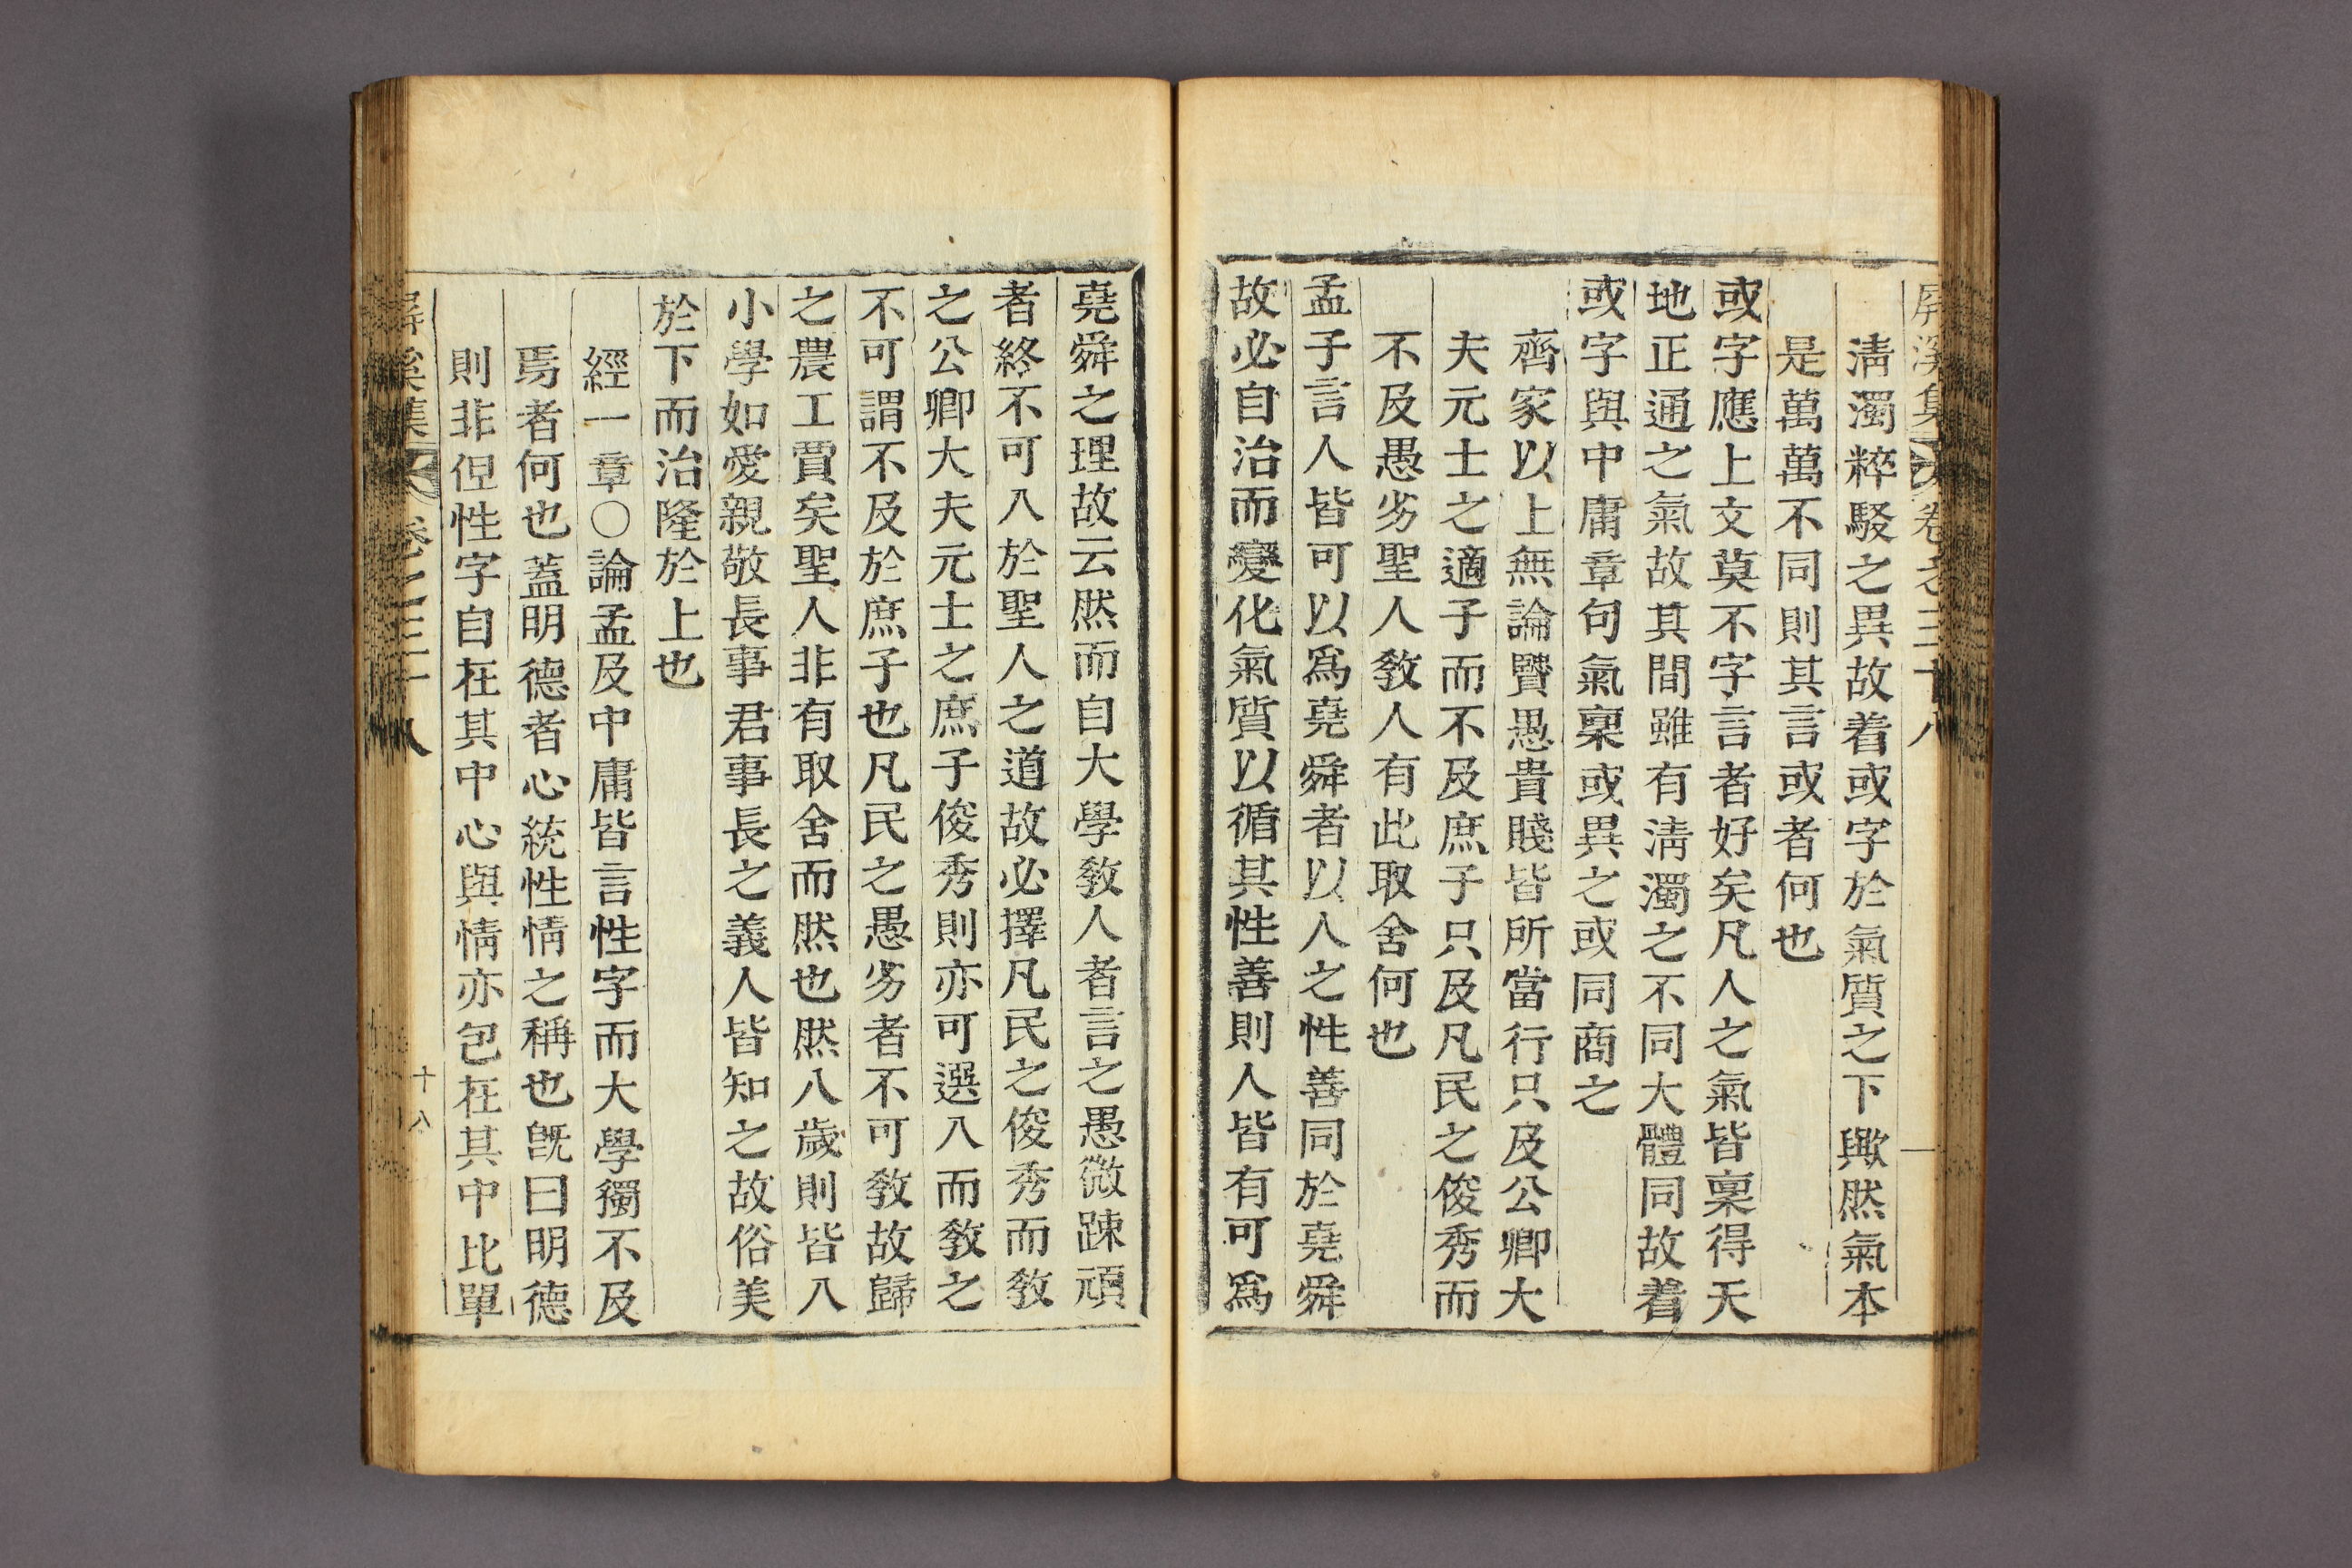 屛溪集 卷之三十八
淸濁粹駁之異故着或字於氣質之下歟然氣本
是萬萬不同則其言或者何也
或字應上文莫不字言者好矣凡人之氣皆稟得天
地正通之氣故其間雖有淸濁之不同大體同故着
或字與中庸章句氣稟或異之或同商之
齊家以上無論賢愚貴賤皆所當行只及公卿大
夫元士之適子而不及庶子只及凡民之俊秀而
不及愚劣聖人敎人有此取舍何也
孟子言人皆可以爲堯舜者以人之性善同於堯舜
故必自治而變化氣質以循其性善則人皆有可爲
堯舜之理故云然而自大學敎人者言之愚微踈頑
者終不可入於聖人之道故必擇凡民之俊秀而敎
之公卿大夫元士之庶子俊秀則亦可選入而敎之
不可謂不及於庶子也凡民之愚劣者不可敎故歸
之農工賈矣聖人非有取舍而然也然八歲則皆入
小學如愛親敬長事君事長之義人皆知之故俗美
於下而治隆於上也
經一章○論孟及中庸皆言性字而大學獨不及
焉者何也蓋明德者心統性情之稱也旣曰明德
則非但性字自在其中心與情亦包在其中比單
屛溪集 卷之三十八 十八